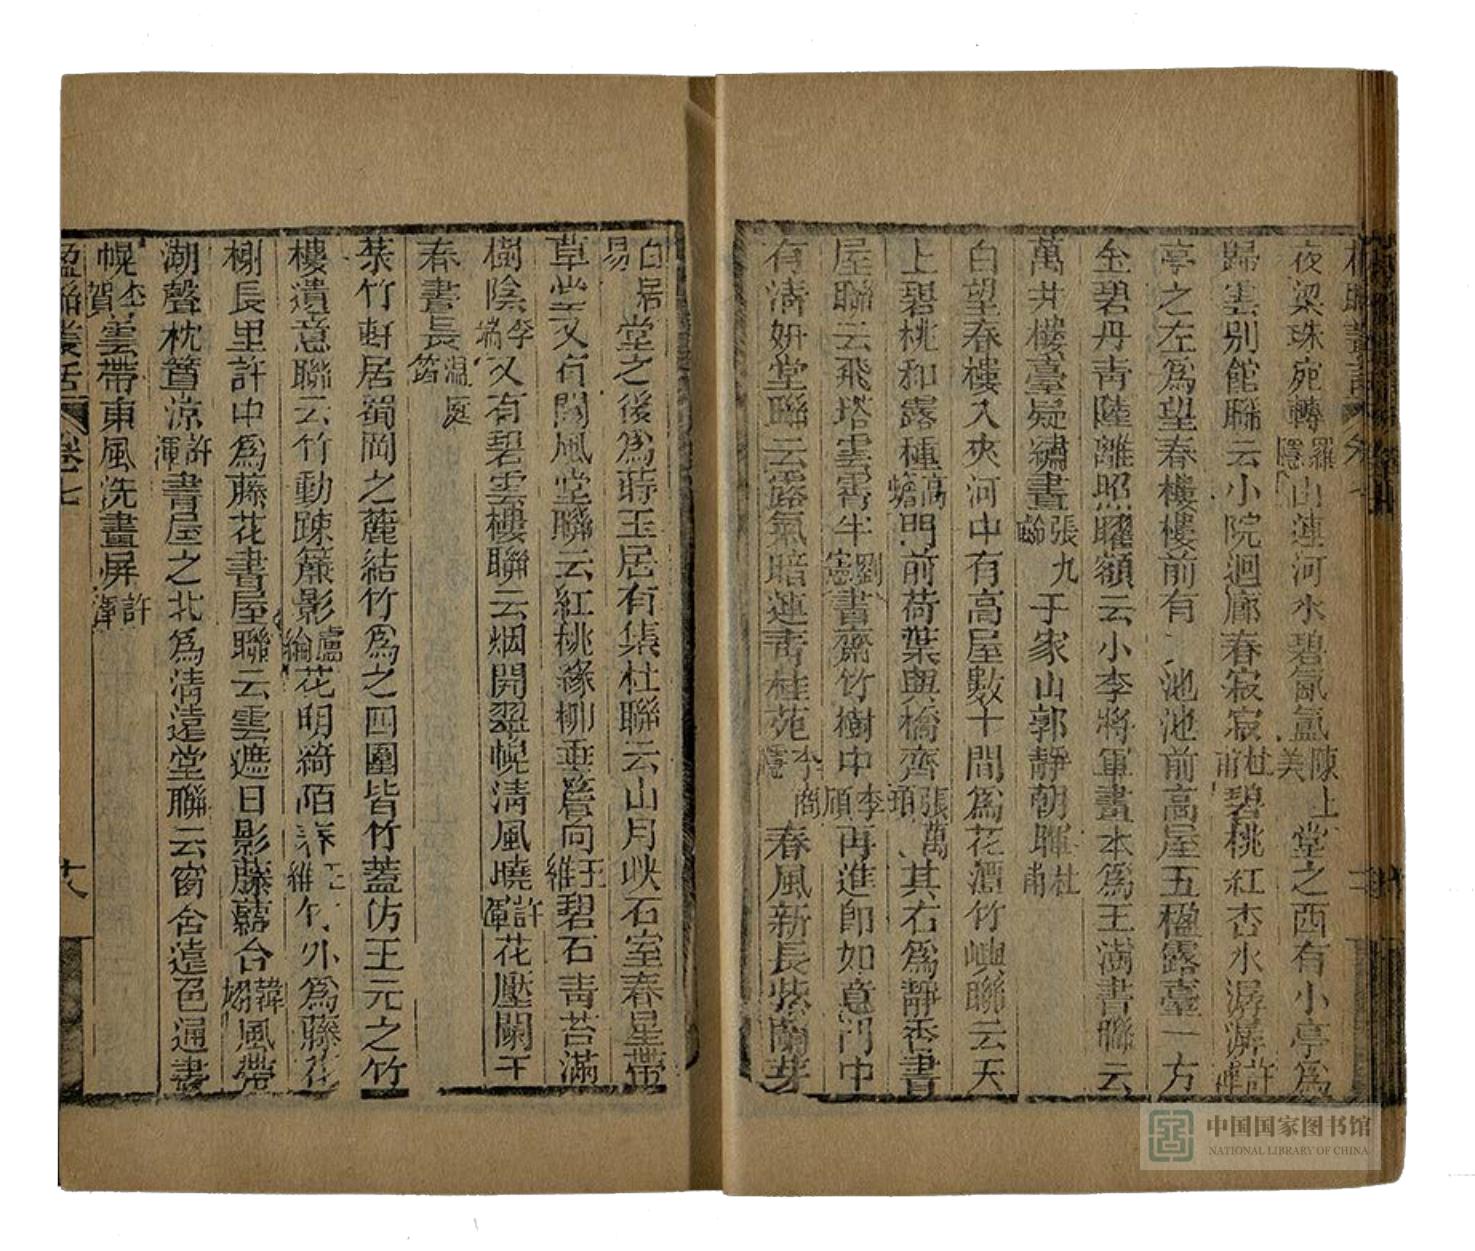 夜梁珠宛轉羅隱山連河水碧氤氳陳上美堂之西有小亭爲
歸雲别館聯云小院迴廊春寂寂杜甫碧桃紅杏水潺潺許渾
亭之左爲望春樓樓前有池池前高屋五楹露臺一方
金碧丹青陸離照耀額云小李將軍畫本爲王澍書聯云
萬井樓臺疑繡畫張九齡千家山郭靜朝暉杜甫
白望春樓入夾河中有高屋數十間爲花潭竹嶼聯云天
上碧桃和露種高蟾門前荷葉與橋齊張萬頃其右爲靜香書
屋聯云飛塔雲霄半劉憲書齋竹樹中李頎再進卽如意門中
有清妍堂聯云露氣暗連青桂苑李商隱春風新長紫蘭芽
白居易堂之後爲蒔玉居有集杜聯云山月映石室春星帶
草堂又有閬風堂聯云紅桃綠柳垂簷向王維碧石青苔滿
樹陰李端又有碧雲樓聯云烟開翠幌清風曉許渾花壓闌干
春晝長温庭筠
菉竹軒居蜀岡之麓結竹爲之四圍皆竹蓋仿王元之竹
樓遺意聯云竹動疎簾影盧綸花明綺陌春王維竹外爲藤花
榭長里許中爲藤花書屋聯云雲遮日影藤蘿合韓翃風帶
湖聲枕簟涼許渾書屋之北爲清遠堂聯云窗含遠色通書
幌李賀雲帶東風洗畫屏許渾
楹聯叢話 卷七
中国国家图书馆
NATIONAL LIBRARY OF CHINA